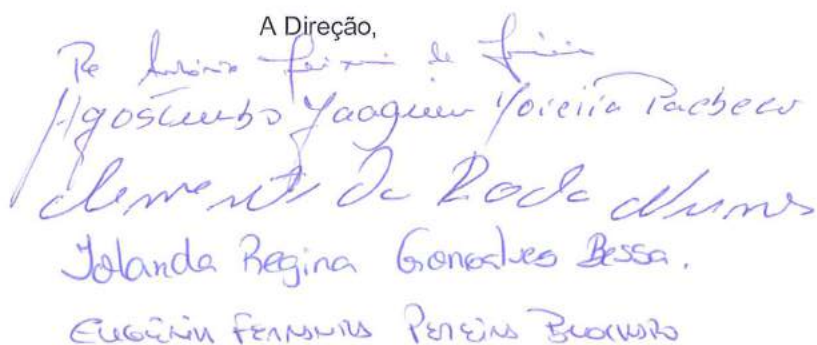 A Direção,
Pe António Teixeira de
Agostinho Joaquim Moreira Pacheco
Clemente Da Rocha Nunes
Iolanda Regina Gonçalves Bessa.
Eugénia Fernanda Pereira